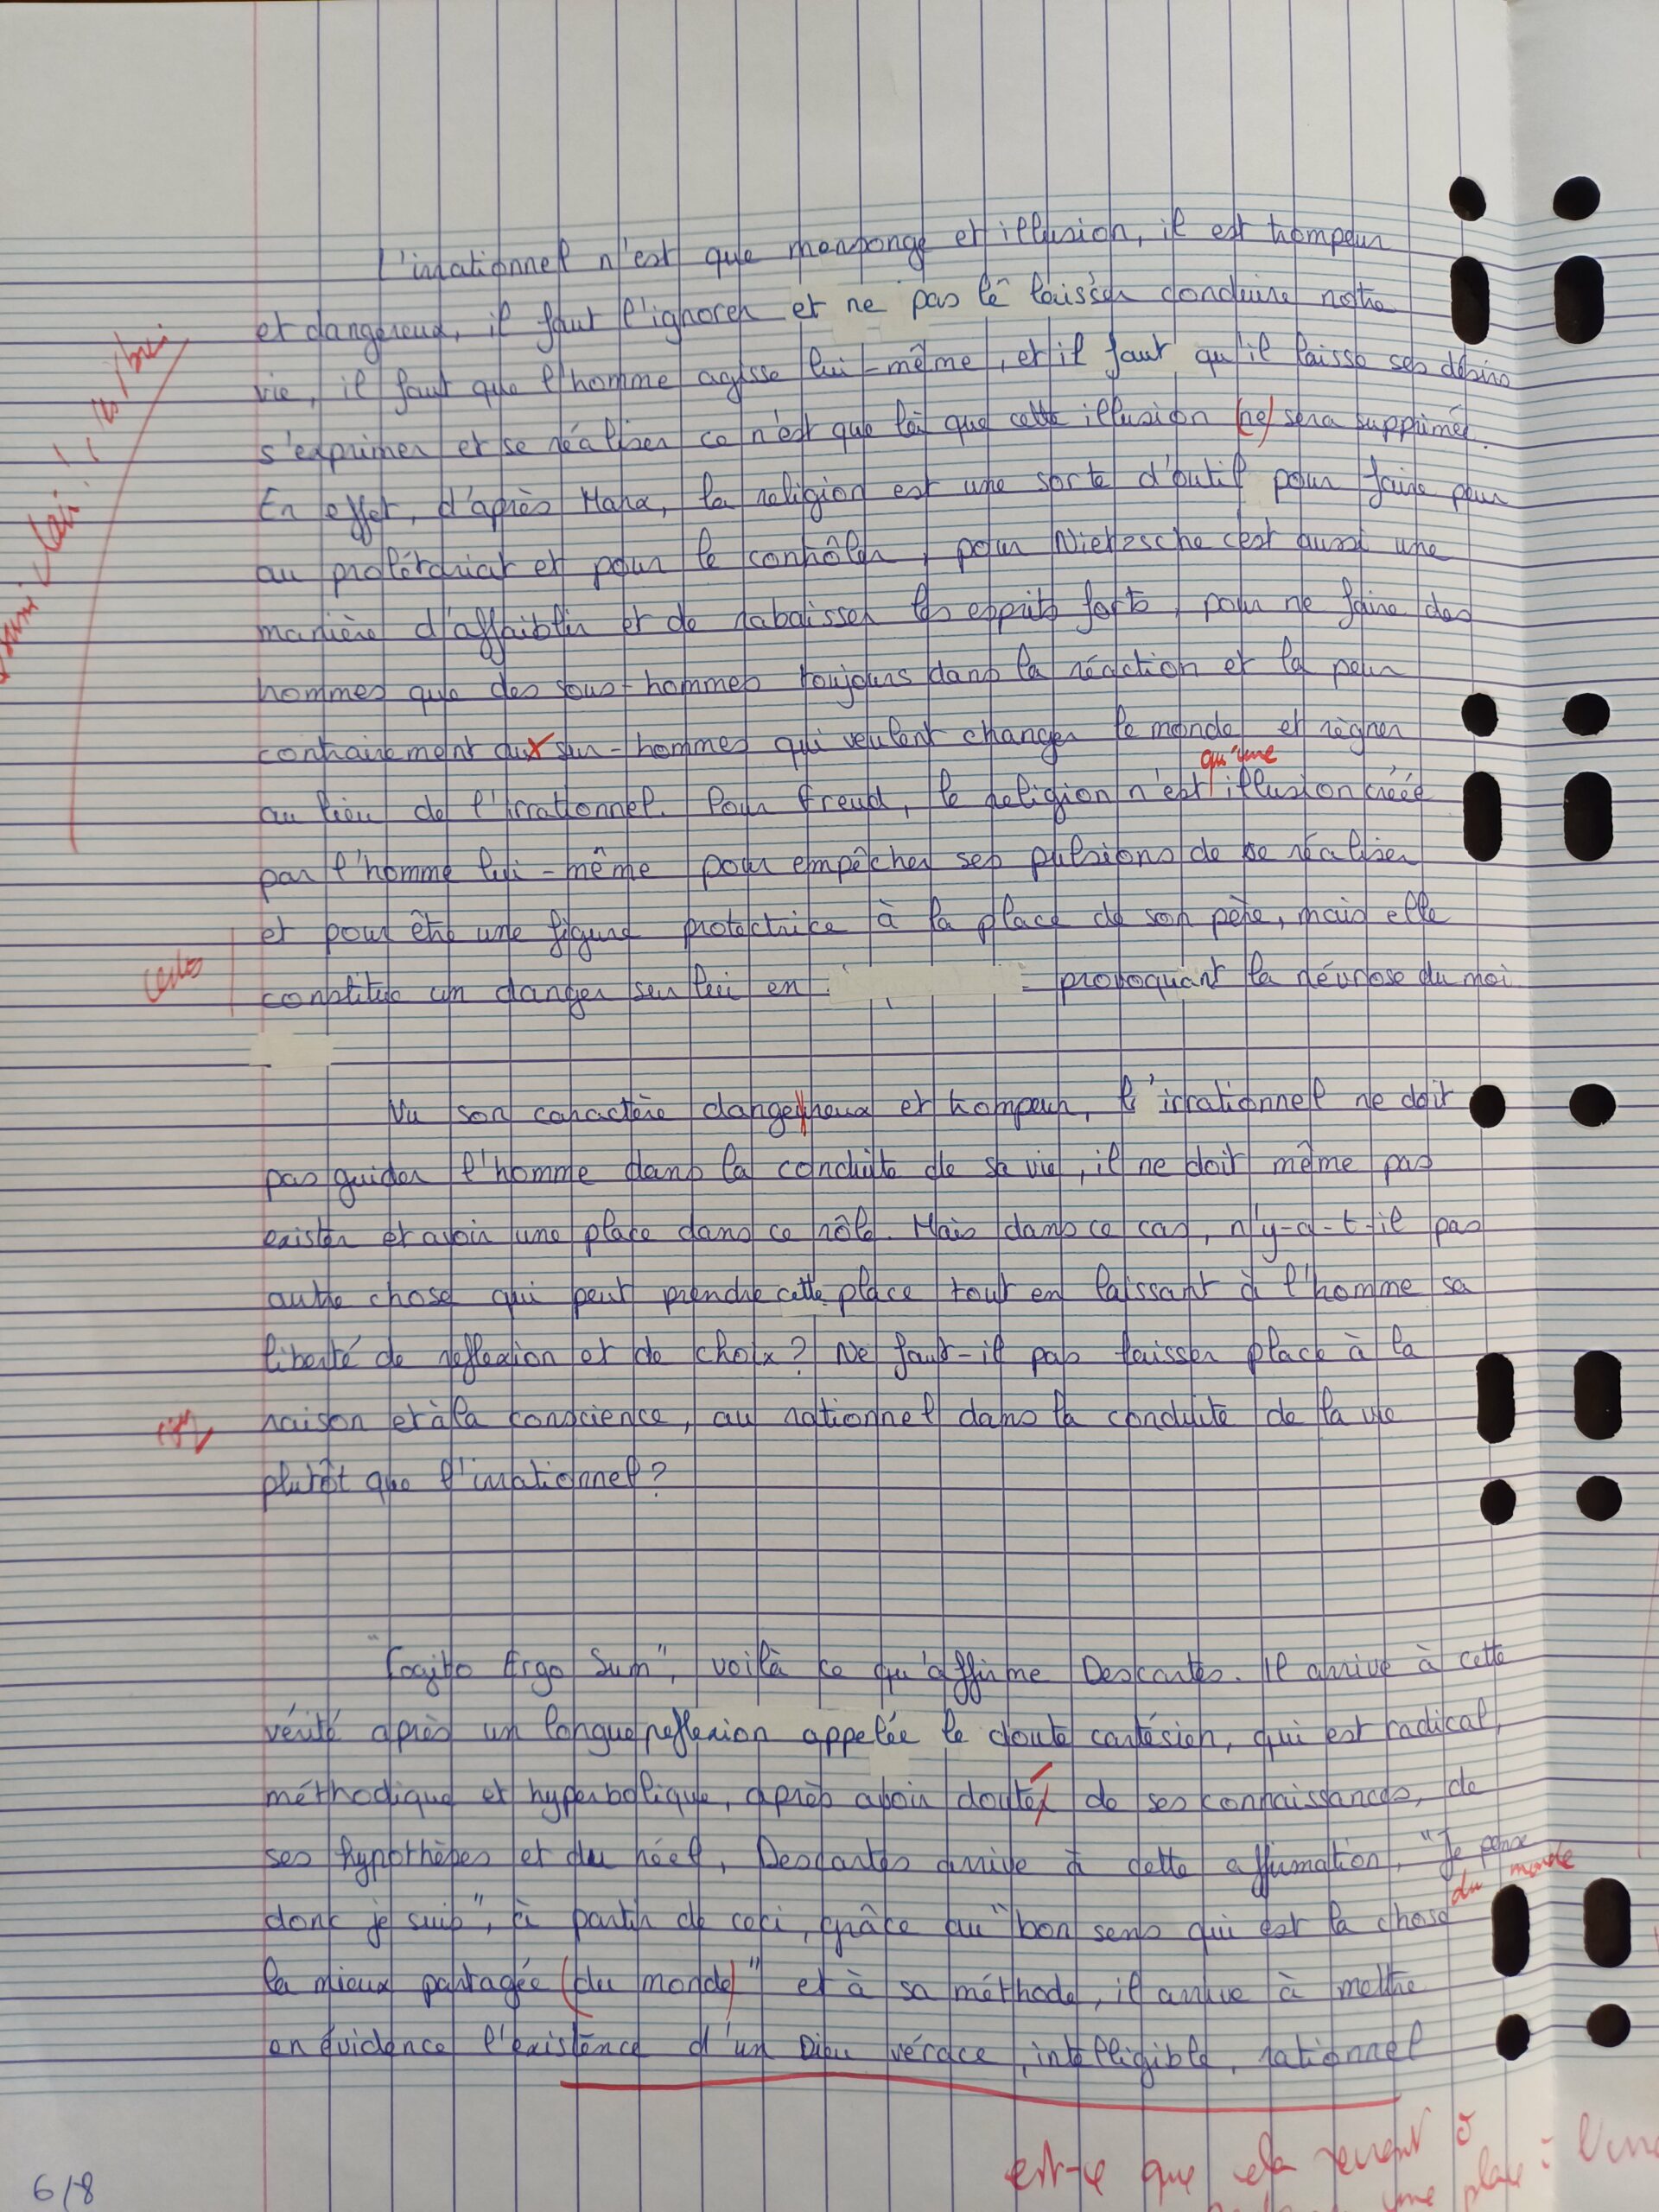 L'irrationnel n'est que mensonge et illusion, il est trompeur
et dangereux, il faut l'ignorer et ne pas le laisser conduire notre
vie, il faut que l'homme agisse lui-même, et il faut qu'il laisse ses désirs
s'exprimer et se réaliser ce n'est que là que cette illusion (ne) sera supprimée.
En effet, d'après Marx, la religion est une sorte d'outil pour faire peur
au prolétariat et pour le contrôler, pour Nietzsche c'est aussi une
manière d'affaiblir et de rabaisser les esprits forts, pour ne faire des
hommes que des sous-hommes toujours dans la réaction et la peur
contrairement aux sur-hommes qui veulent changer le monde et règner
qu'une
au lieu de l'irrationnel. Pour Freud, la religion n'est illusion créée
par l'homme lui-même pour empêcher ses pulsions de se réaliser
et pour être une figure protectrice à la place de son père, mais elle
constitue un danger sur lui en provoquant la névrose du moi
Vu son caractère dangereux et trompeur, l'irrationnel ne doit
pas guider l'homme dans la conduite de sa vie, il ne doit même pas
exister et avoir une place dans ce rôle. Mais dans ce cas, n'y-a-t-il pas
autre chose qui peut prendre cette place tout en laissant à l'homme sa
liberté de reflexion et de choix? Ne faut-il pas laisser place à la
raison et à la conscience, au rationnel dans la conduite de la vie
plutôt que l'irrationnel?
"Cogito Ergo Sum", voilà ce qu'affirme Descartes. Il arrive à cette
vérité après un longue reflexion appelée le doute cartésien, qui est radical,
méthodique et hyperbolique, après avoir douté de ses connaissances, de
ses hypothèses et du réel, Descartes arrive à cette affirmation, "Je pense
du monde
donc je suis", à partir de ceci, grâce au "bon sens qui est la chose
la mieux partagée (du monde)" et à sa méthode, il arrive à mettre
en évidence l'existence d'un Dieu vérace, intelligible, rationnel
est-ce que cela revient à
une place à
6/8